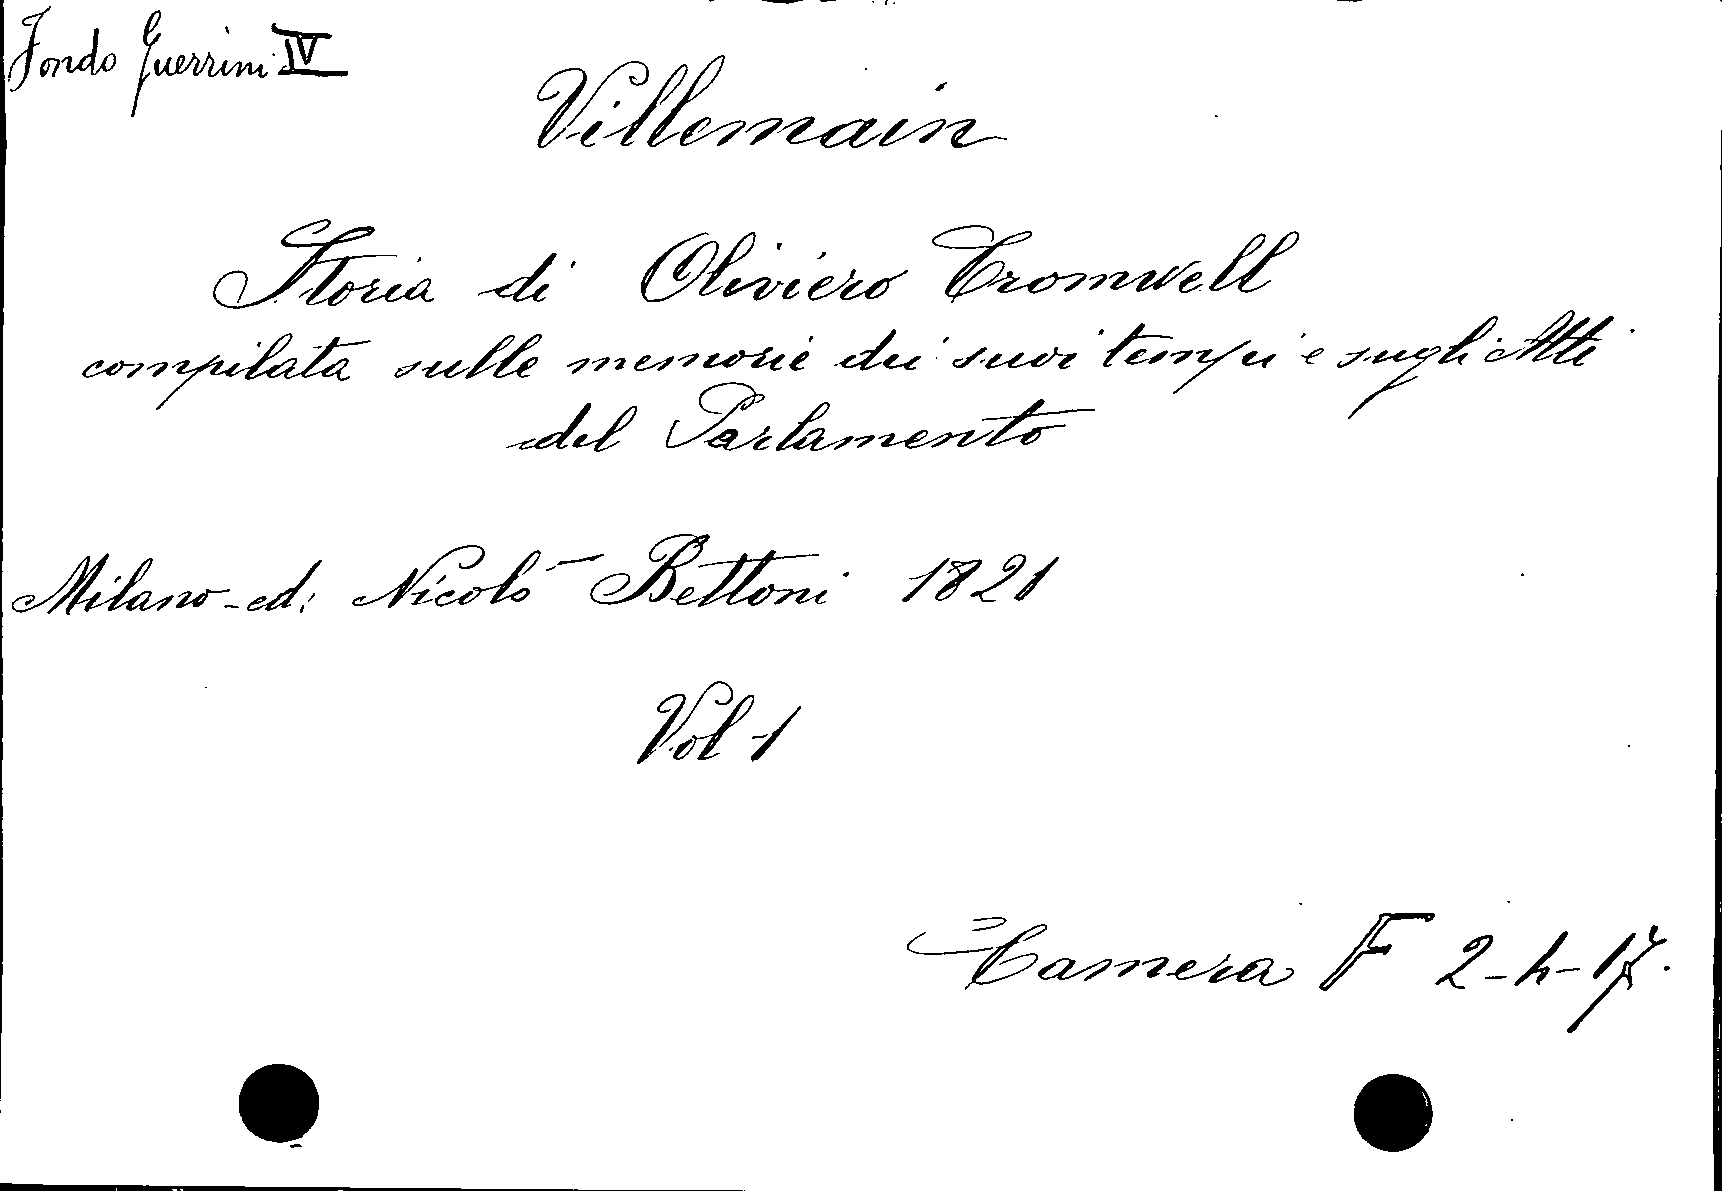 Fondo Guerrini IV
Villemain
Storia di Oliviero Cromwell
compilata sulle memorie dei suoi tempi e sugli Atti
del Parlamento
Milano - ed: Nicolò Bettoni 1821
Vol 1
Camera F 2-h-17.